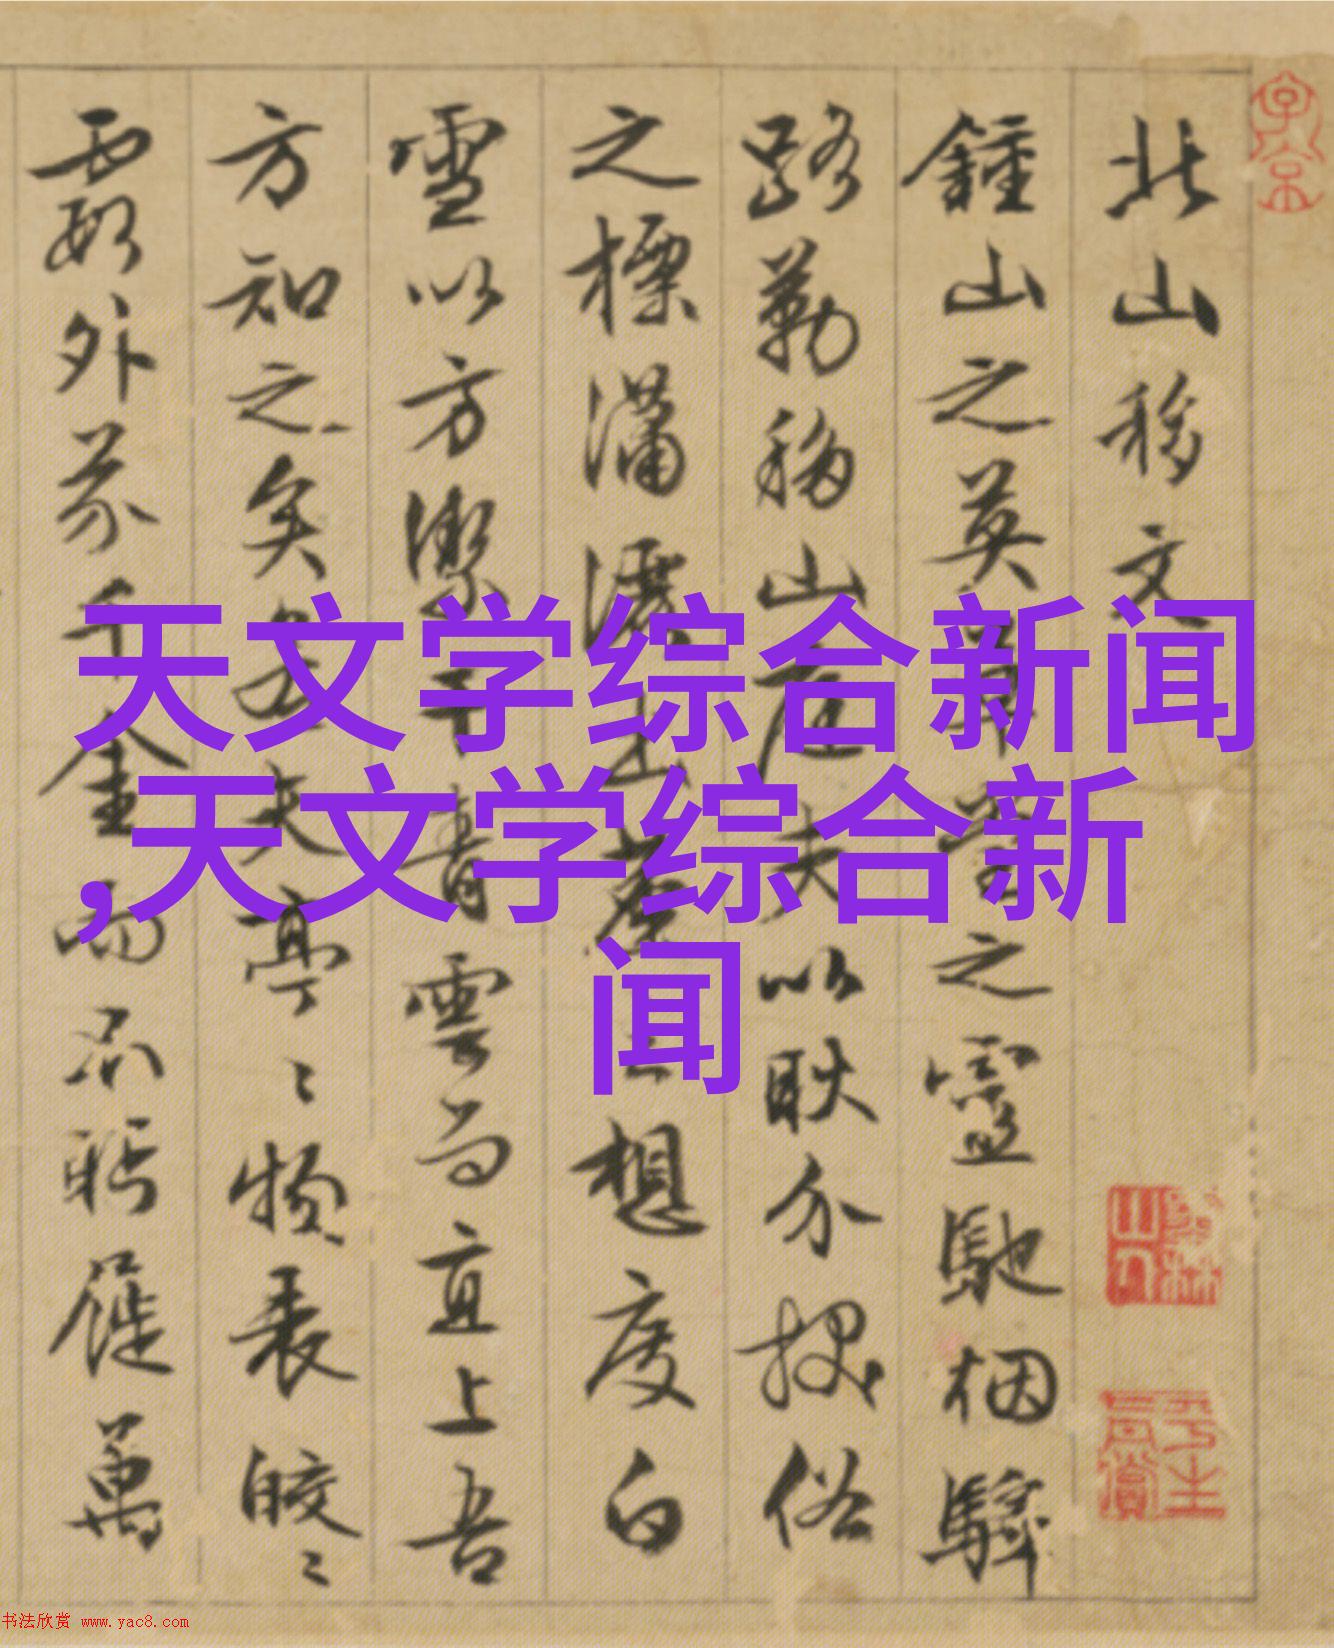 天文学综合新闻
,天文学综合新
闻
北山移文
鍾山之英草堂之靈馳烟驛
路勒移山庭夫以耿介拔俗
之標瀟灑出塵之想度白
雪以方潔干青雲而直上吾
方知之矣若夫亭〻物表皎〻
霞外芥千金而不眄屣萬
书法欣赏 www.yac8.com